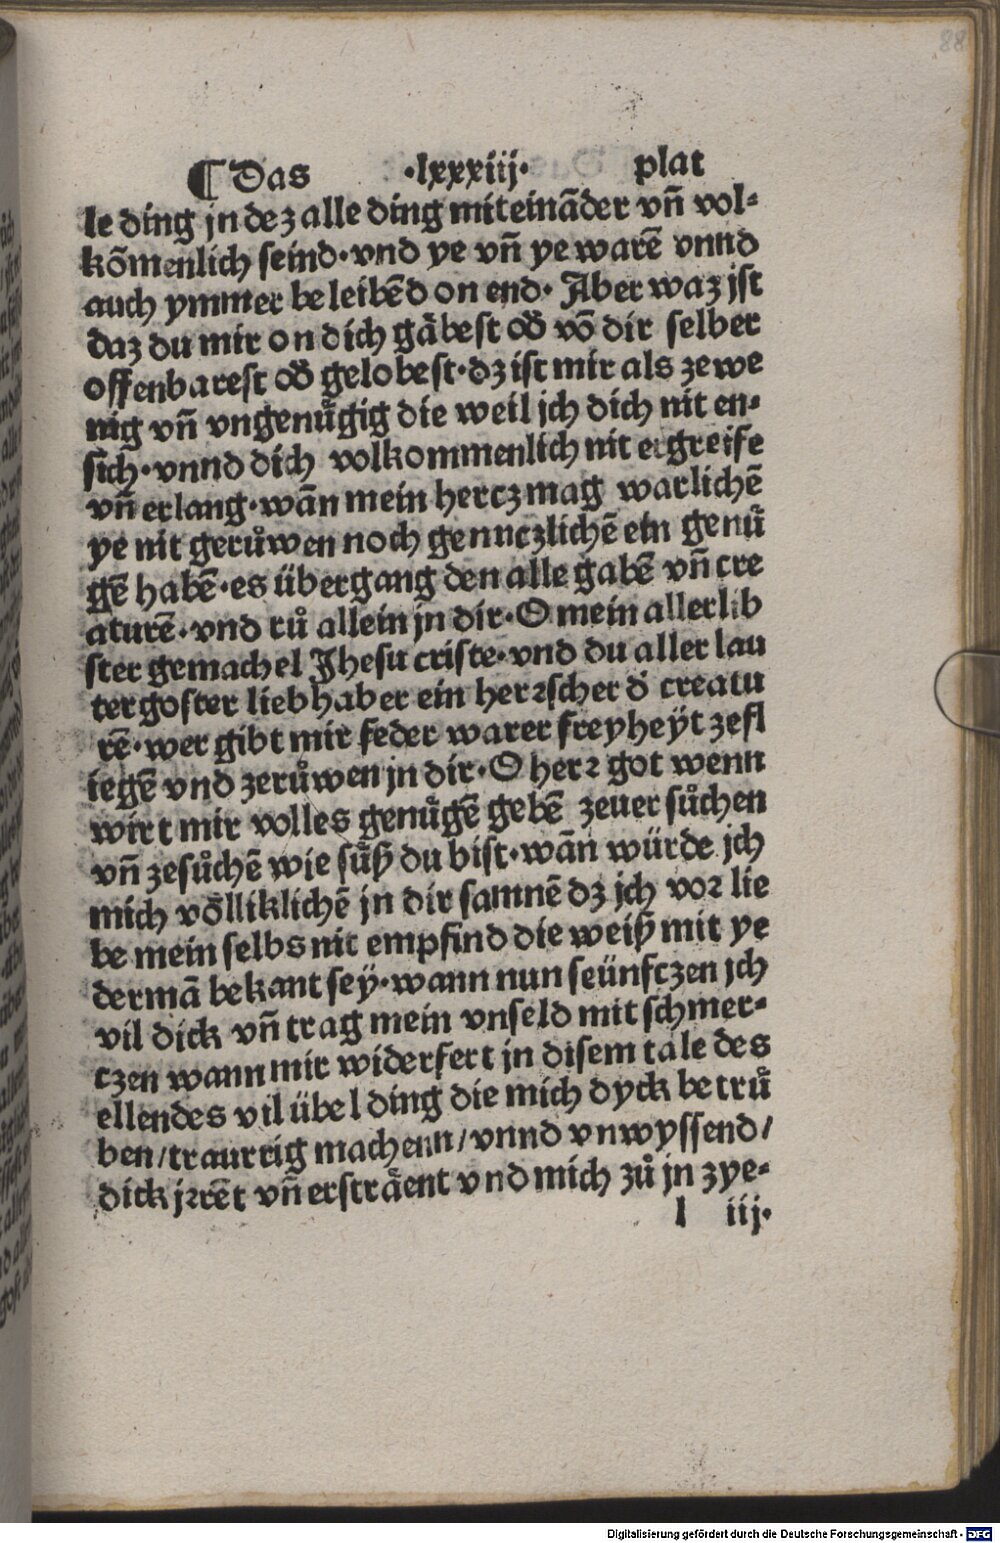 88
¶ Das ·lxxxiij· plat
le ding jn dez alle ding miteinãder vñ vol⸗
kõmenlich seind·vnd ye vñ ye warẽ vnnd
auch ymmer beleibẽd on end· Aber waz jst
daz du mir on dich gåbest od̃ võ dir selber
offenbarest od̃ gelobest·dz ist mir als zewe
nig vñ vngenůgig die weil jch dich nit en⸗
sich·vnnd dich volkommenlich nit ergreife
vñ erlang·wãn mein hercz mag warlichẽ
ye nit gerůwen noch genuczlichẽ ein genů
gẽ habẽ·es übergang den alle gabẽ vñ cre
aturẽ·vnd rů allein jn dir·O mein allerlib
ster gemachel Jhesu criste·vnd du aller lau
tergoster liebhaber ein herꝛscher d̃ creatu
rẽ·wer gibt mir feder warer freyheÿt zefl
iegẽ vnd zerůwen jn dir·O herꝛ got wenn
wirt mir volles genůgẽ gebẽ zeuersůchen
vñ zesůchẽ wie sůß du bist·wãn würde jch
mich võlliklichẽ jn dir samnẽ dz jch voꝛ lie
be mein selbs nit empfind die weiß mit ye
dermã bekant seÿ·wann nun seünftzen jch
vil dick vñ trag mein vnseld mit schmer⸗
czen wann mir widerfert jn disem tale des
ellendes vil übel ding die mich dyck betrů
ben/traurrig machenn/vnnd vnwyssend/
dick jꝛrẽt vñ erstråent vnd mich zů jn zye⸗
l iij·
Digitalisierung gefördert durch die Deutsche Forschungsgemeinschaft - DFG